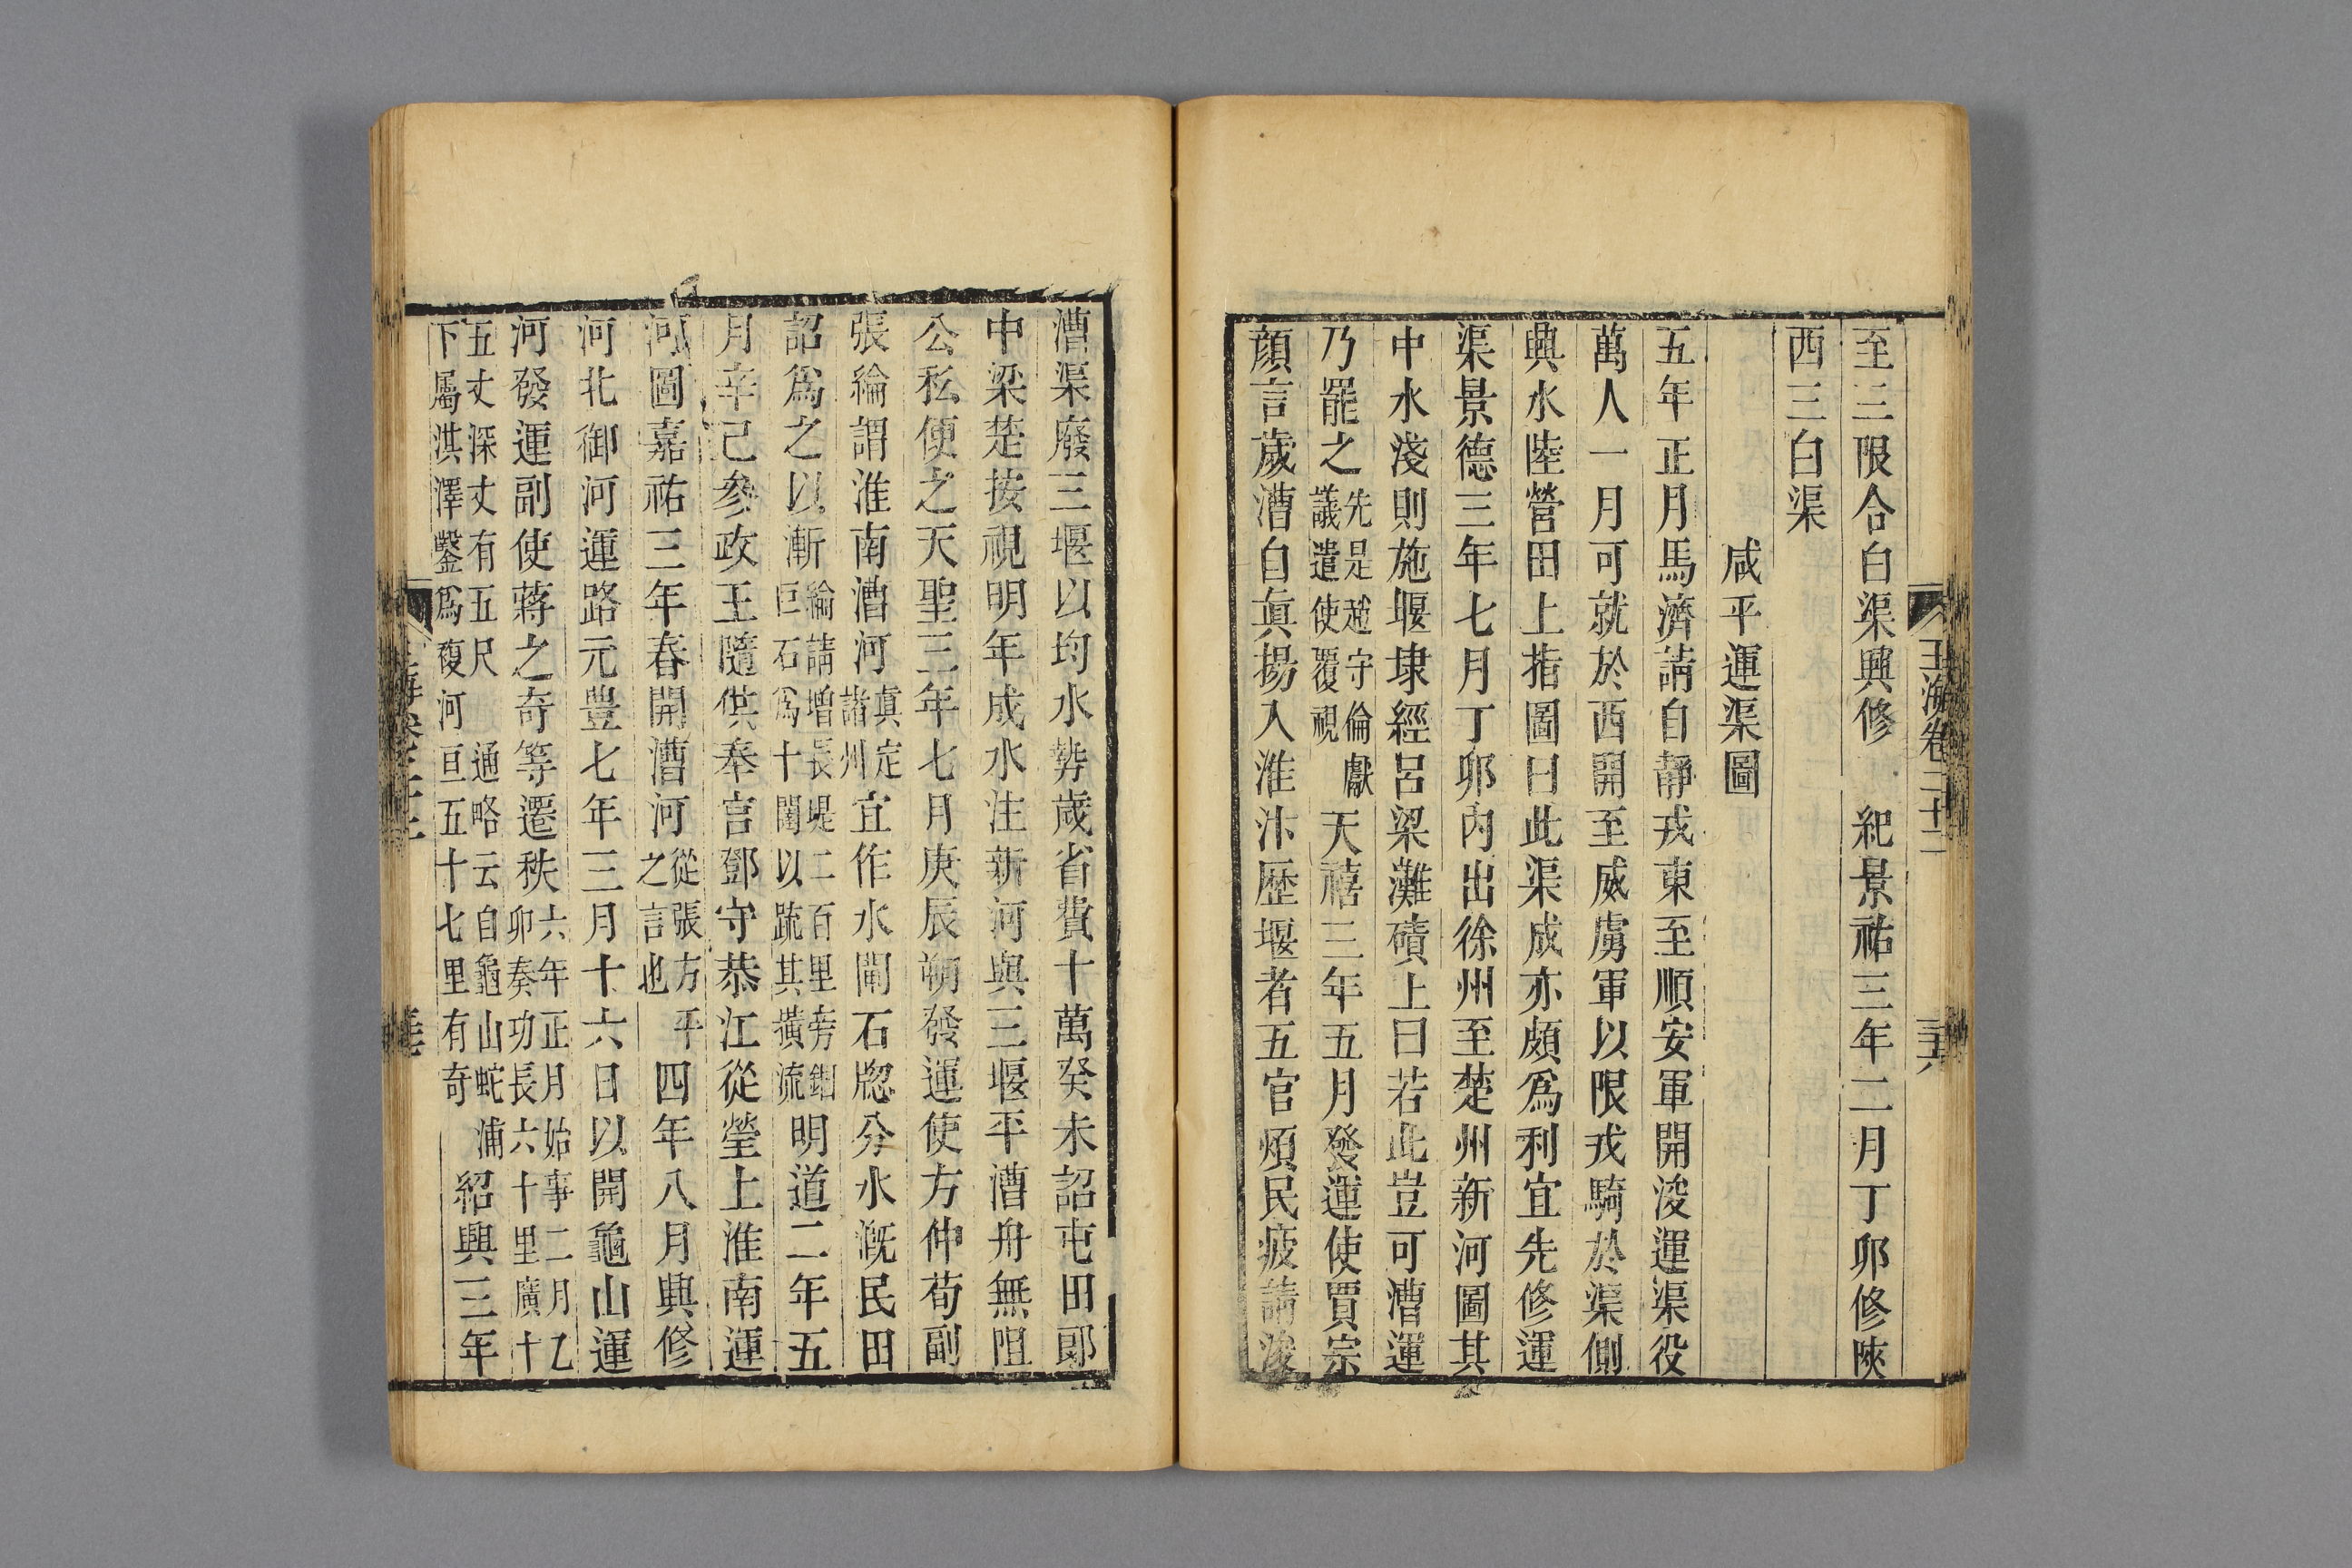 玉海卷二十二
三六
至三限合白渠興修　紀景祐三年二月丁卯修陜
西三白渠
咸平運渠圖
五年正月馬濟請自靜戎東至順安軍開浚運渠役
萬人一月可就於西開至威虜軍以限戎騎於渠側
興水陸營田上指圖曰此渠成亦頗爲利宜先修運
渠景德三年七月丁卯內出徐州至楚州新河圖其
中水淺則施堰埭經呂梁灘磧上曰若此豈可漕運
乃罷之先是趙守倫獻議遣使覆視天禧三年五月發運使賈宗
顔言歲漕自眞揚入淮汴歷堰者五官煩民疲請浚
漕渠廢三堰以均水勢歲省費十萬癸未詔屯田郎
中梁楚按視明年成水注新河與三堰平漕舟無阻
公私便之天聖三年七月庚辰朔發運使方仲荀副
張綸謂淮南漕河眞定諸州宜作水閘石䃮分水漑民田
詔爲之以漸綸請增長堤二百里旁錮巨石爲十閘以䟽其橫流明道二年五
月辛己參政王隨供奉言鄧守恭江從瑩上淮南運
河圖嘉祐三年春開漕河從張方平之言也四年八月興修
河北御河運路元豐七年三月十六日以開龜山運
河發運副使蔣之奇等遷秩六年正月始事二月乙卯奏功長六十里廣十
五丈深丈有五尺　通略云自龜山蛇浦下屬洪澤鑿爲複河亘五十七里有奇紹興三年